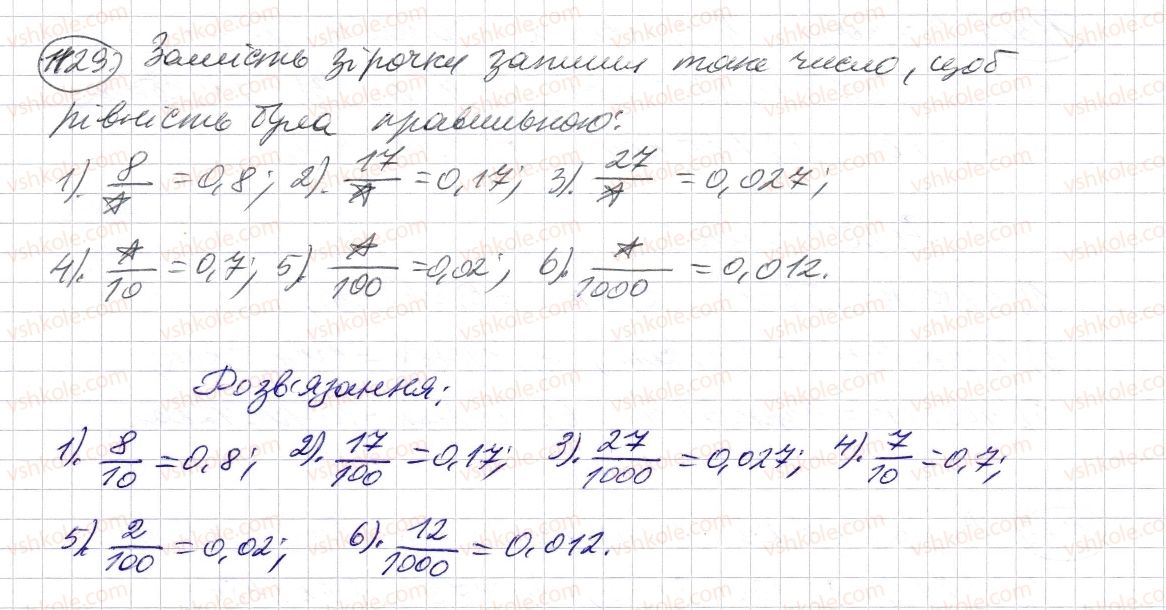 1129) Замість зірочки запиши таке число, щоб
рівність була правильною:
1). 8/* = 0,8; 2). 17/* = 0,17; 3). 27/* = 0,027;
4). */10 = 0,7; 5). */100 = 0,02; 6). */1000 = 0,012.
Розв'язання:
1). 8/10 = 0,8; 2). 17/100 = 0,17; 3). 27/1000 = 0,027; 4). 7/10 = 0,7;
5). 2/100 = 0,02; 6). 12/1000 = 0,012.
vshkole.com